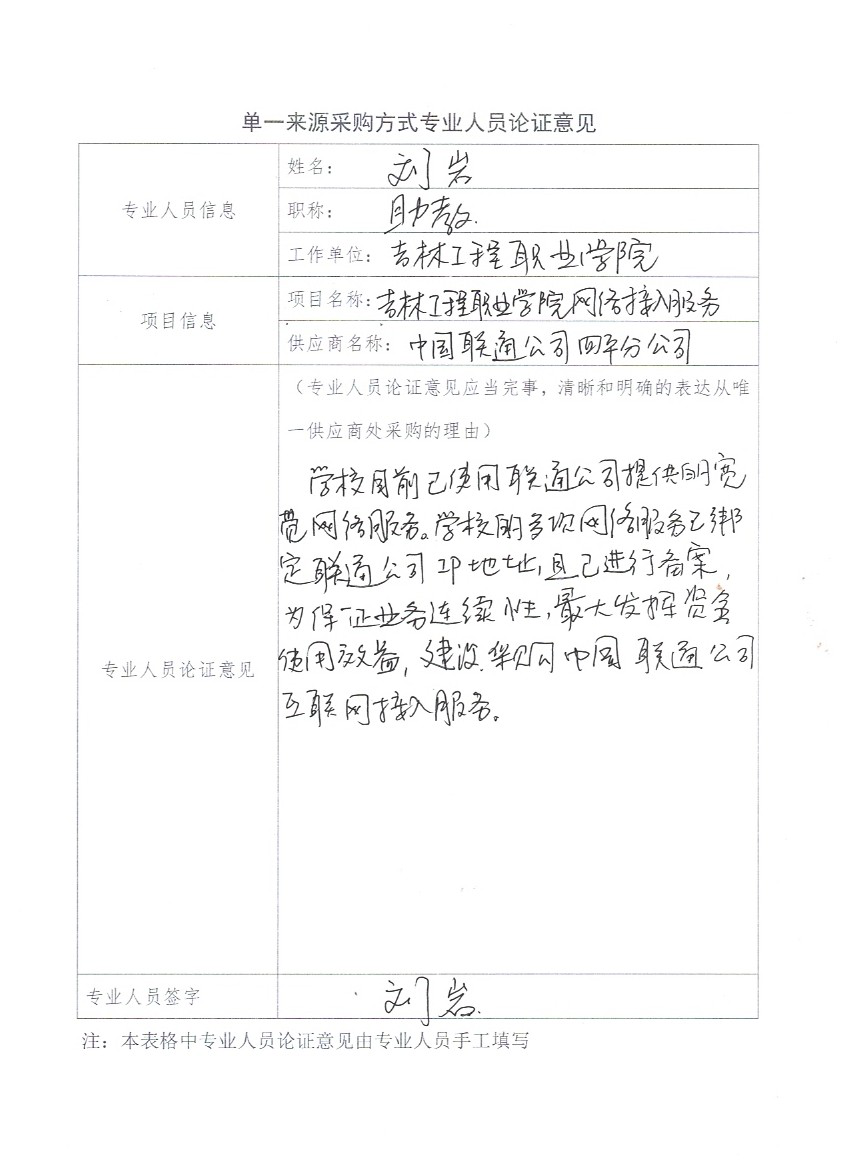 单一来源采购方式专业人员论证意见
专业人员信息
姓名： 刘岩
职称： 助教.
工作单位： 吉林工程职业学院
项目信息
项目名称：吉林工程职业学院网络接入服务
供应商名称： 中国联通公司四平分公司
专业人员论证意见
（专业人员论证意见应当完事，清晰和明确的表达从唯
一供应商处采购的理由）
学校目前已使用联通公司提供的宽
带网络服务。学校的多项网络服务已绑
定联通公司IP地址，且已进行备案，
为保证业务连续性，最大发挥资金
使用效益，建议采购中国联通公司
互联网接入服务。
专业人员签字
刘岩.
注：本表格中专业人员论证意见由专业人员手工填写